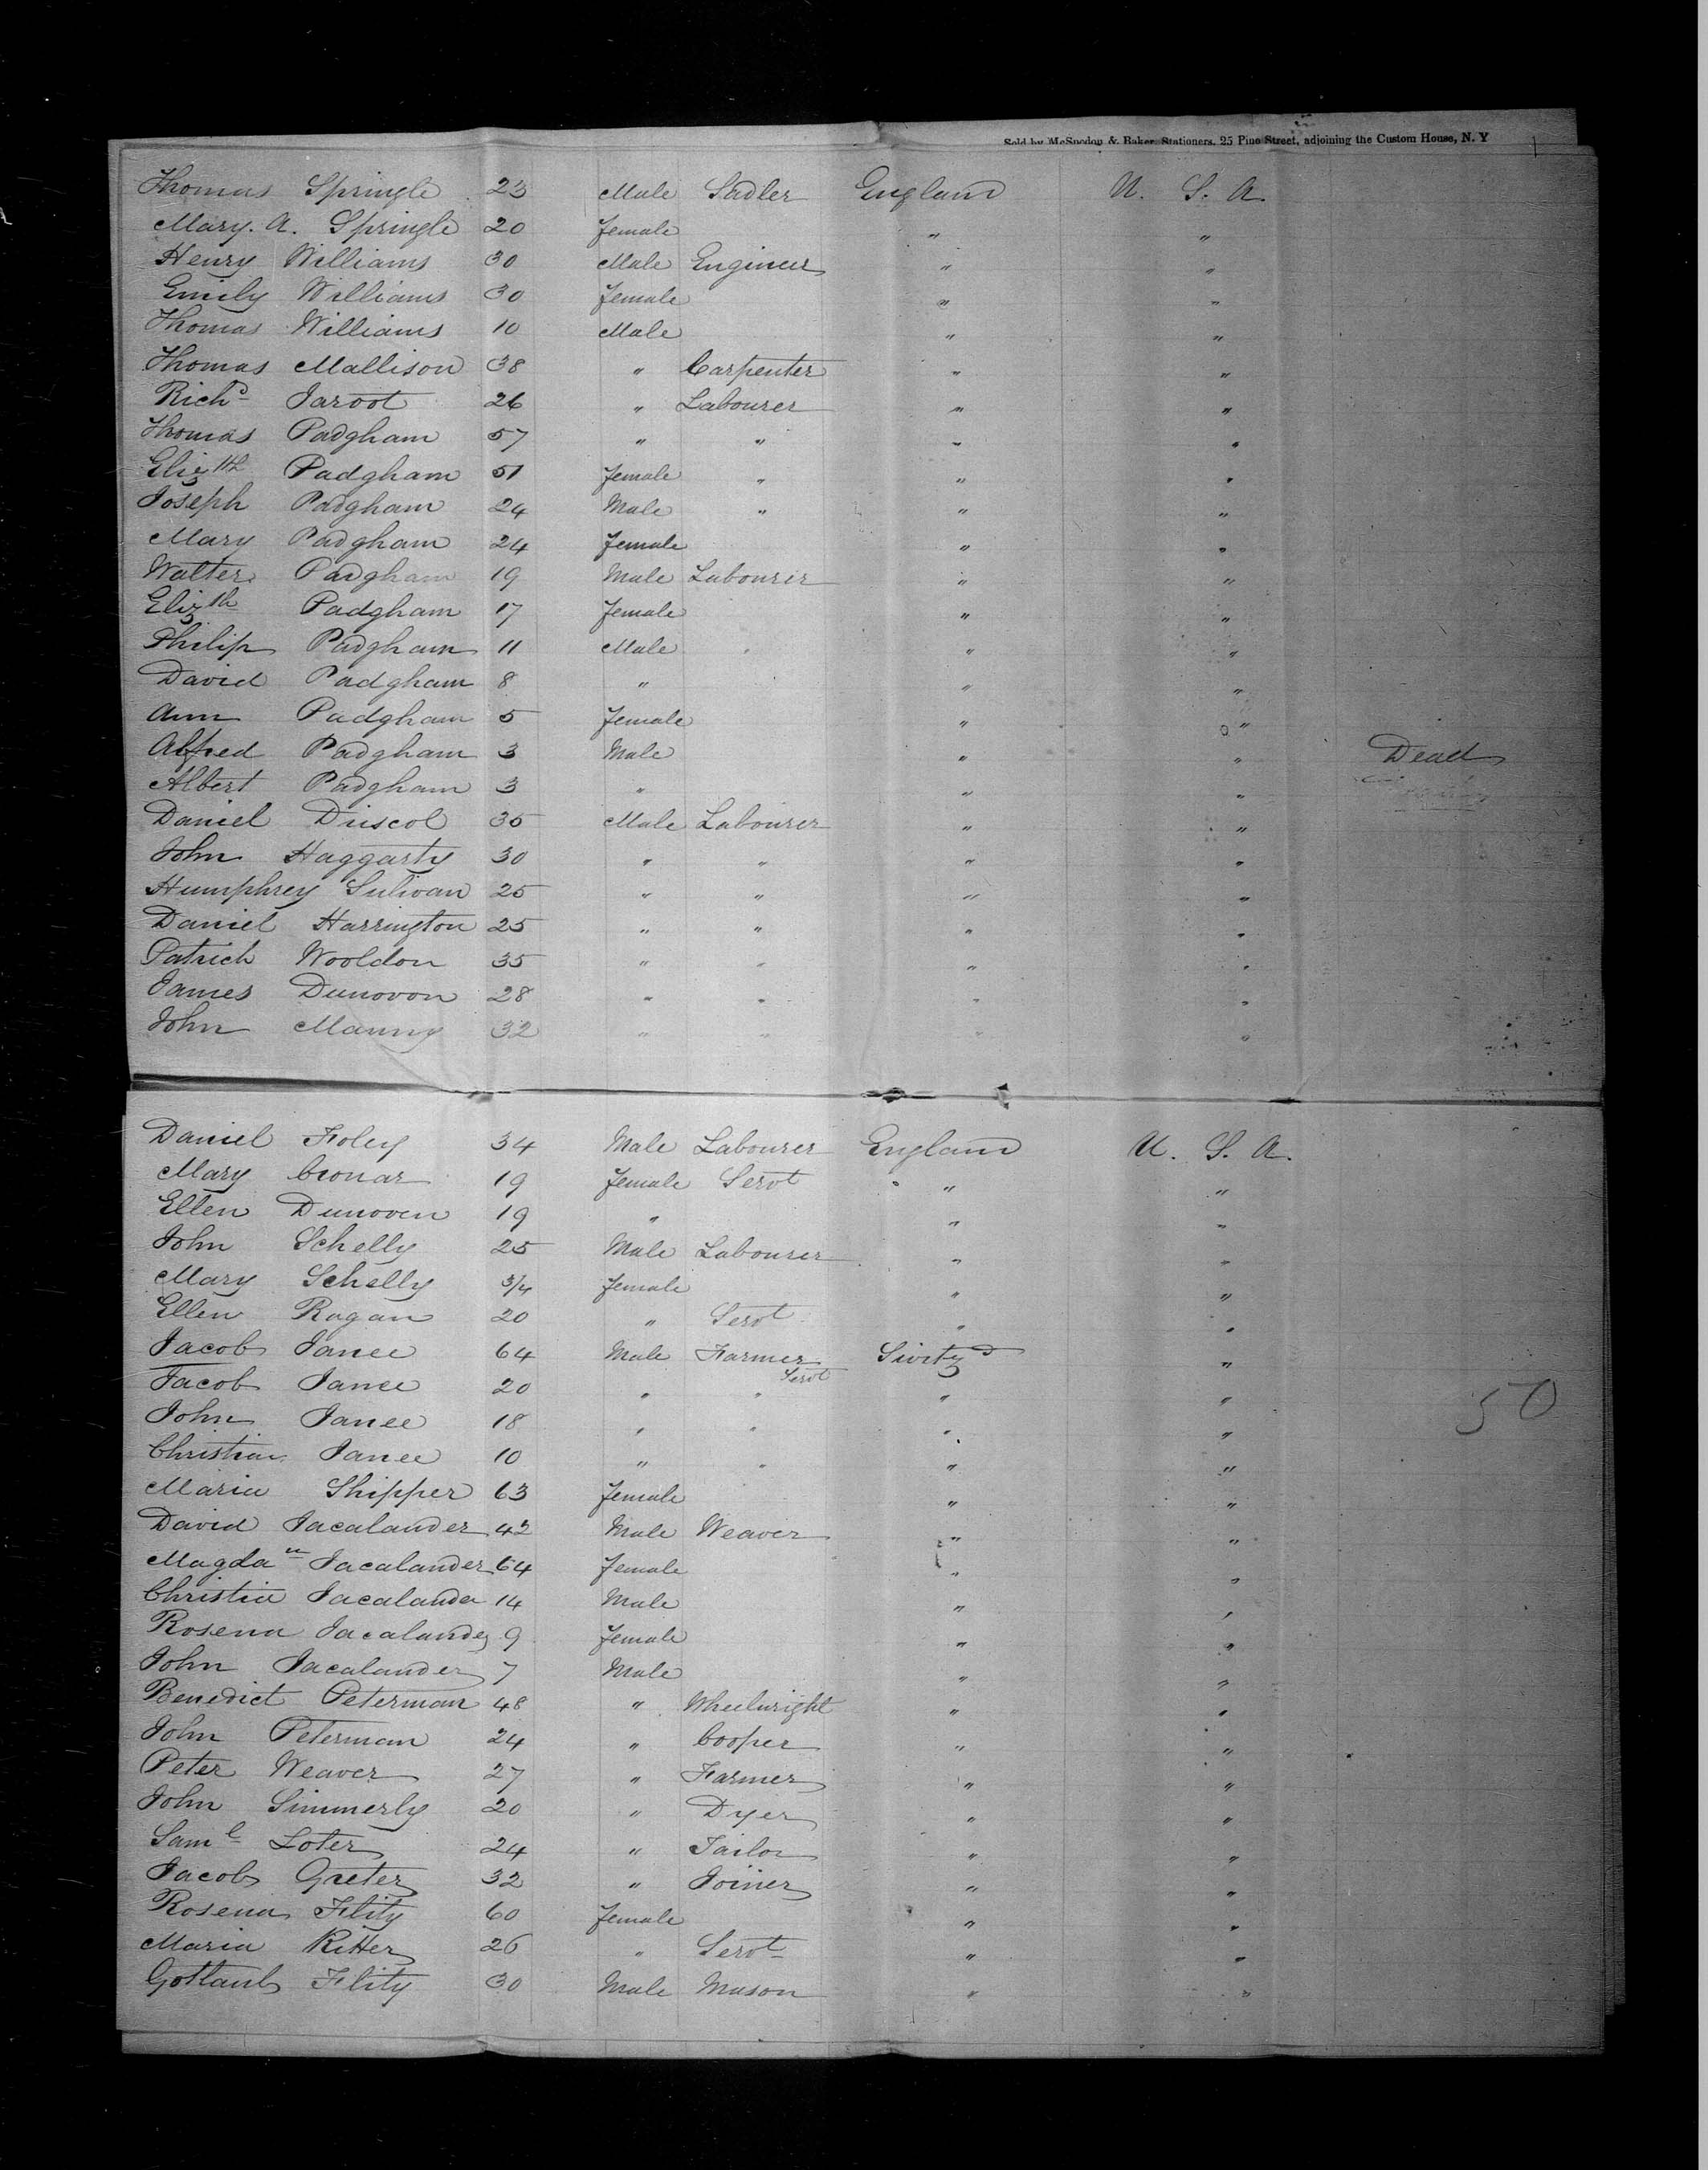 Sold by McSpedon & Baker, Stationers, 25 Pine Street, adjoining the Custom House, N. Y
Thomas Springle 23 Male Sadler England U. S. A.
Mary. A. Springle 20 Female " "
Henry Williams 30 Male Engineer " "
Emily Williams 30 Female " "
Thomas Williams 10 Male " "
Thomas Mallison 38 " Carpenter " "
Richd Jaroot 26 " Labourer " "
Thomas Padgham 57 " " " "
Elizth Padgham 51 Female " " "
Joseph Padgham 24 Male " " "
Mary Padgham 24 Female " "
Walter Padgham 19 Male Labourer " "
Elizth Padgham 17 Female " "
Philip Padgham 11 Male " "
David Padgham 8 " " "
Ann Padgham 5 Female " "
Alfred Padgham 3 Male " " Dead
Albert Padgham 3 " " "
Daniel Driscol 35 Male Labourer " "
John Haggarty 30 " " " "
Humphrey Sulivan 25 " " " "
Daniel Harrington 25 " " " "
Patrick Wooldon 35 " " " "
James Dunovon 28 " " " "
John Manny 32 " " " "
Daniel Foley 34 Male Labourer England U. S. A.
Mary Cronar 19 Female Servt " "
Ellen Dunoven 19 " " "
John Schelly 25 Male Labourer " "
Mary Schelly 3/4 Female " "
Ellen Ragan 20 " Servt " "
Jacob Janee 64 Male Farmer Switzd "
Jacob Janee 20 " " Servt " "
John Janee 18 " " " "
Christian Janee 10 " " " "
Maria Shipper 63 Female " "
David Jacalander 42 Male Weaver " "
Magdan Jacalander 64 Female " "
Christia Jacalander 14 Male " "
Rosena Jacalander 9 Female " "
John Jacalander 7 Male " "
Benedict Peterman 48 " Wheelwright " "
John Peterman 24 " Cooper " "
Peter Weaver 27 " Farmer " "
John Simmerly 20 " Dyer " "
Saml Loter 24 " Tailor " "
Jacob Greter 32 " Joiner " "
Rosena Flity 60 Female " "
Maria Ritter 26 " Servt " "
Gotlaub Flity 30 Male Mason " "
50